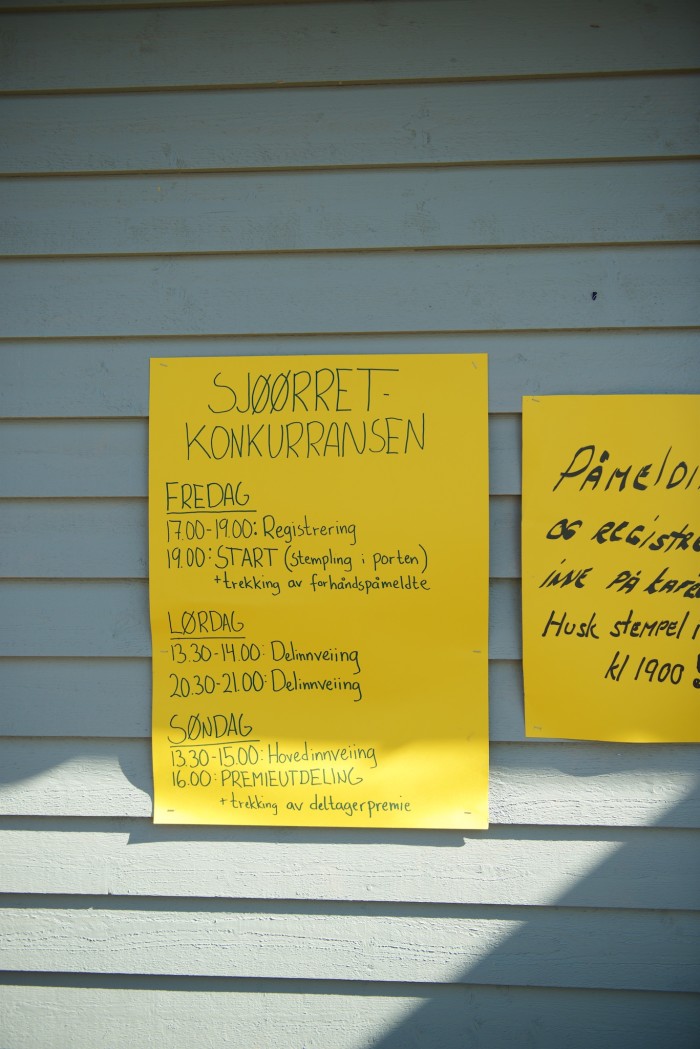 SJØØRRET-
KONKURRANSEN
FREDAG
17.00-19.00: Registrering
19.00: START (stempling i porten)
+trekking av forhåndspåmeldte
LØRDAG
13.30-14.00: Delinnveiing
20.30-21.00: Delinnveiing
SØNDAG
13.30-15.00: Hovedinnveiing
16.00: PREMIEUTDELING
+trekking av deltagerpremie
PÅMELDI
OG REGISTRE
INNE PÅ KAFÉ
HUSK STEMPEL I
kl 1900